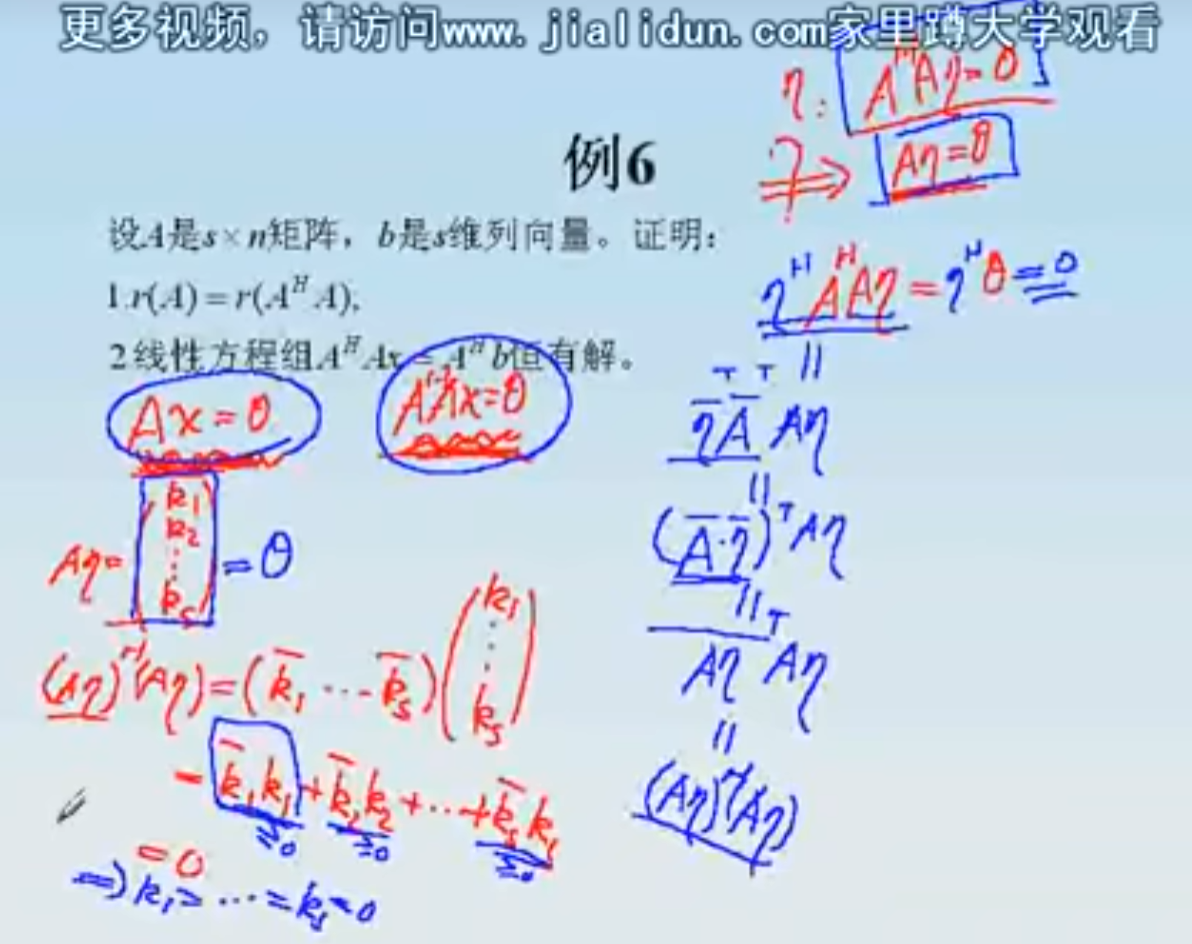 更多视频，请访问www. jialidun. com家里蹲大学观看
η: AᴴAη=θ
? ⇒ Aη=θ
例6
设A是s×n矩阵，b是s维列向量。证明：
1.r(A)=r(AᴴA),
2线性方程组AᴴAx=Aᴴb恒有解。
Ax=θ
AᴴAx=θ
Aη=(k₁ k₂ ⋮ kₛ)=θ
(Aη)ᴴ(Aη)=(k̄₁ ⋯ k̄ₛ)(k₁ ⋮ kₛ)
=k̄₁k₁+k̄₂k₂+⋯+k̄ₛkₛ
≥0 ≥0 ≥0
=0
⇒k₁=⋯=kₛ=0
ηᴴAᴴAη=ηᴴθ=0
||
η̄ᵀĀᵀAη
||
(Ā·η̄)ᵀAη
||
A̅η̅ᵀAη
||
(Aη)ᴴ(Aη)